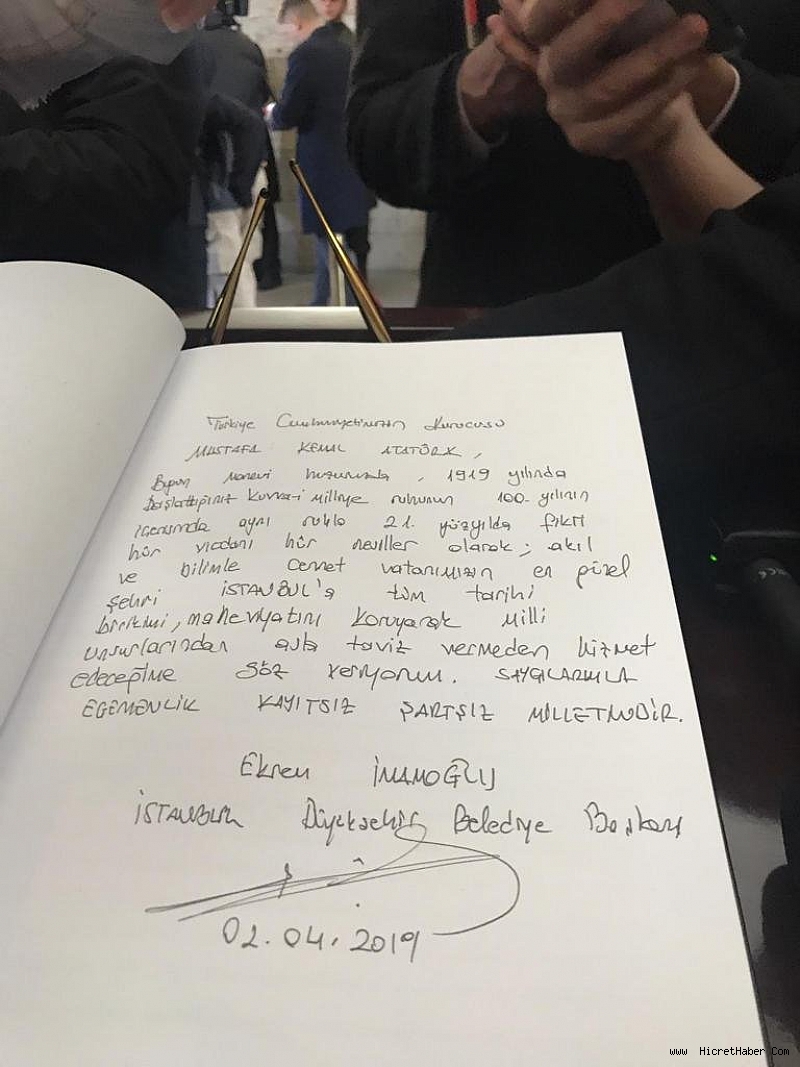 Türkiye Cumhuriyetinizin Kurucusu
MUSTAFA KEMAL ATATÜRK,
Bugün manevi huzurunuzda, 1919 yılında
başlattığınız Kuvva-i Milliye ruhunun 100. yılının
içerisinde aynı ruhla 21. yüzyılda fikri
hür vicdanı hür nesiller olarak; akıl
ve bilimle cennet vatanımızın en güzel
şehri İSTANBUL'a tüm tarihi
birikimi, maneviyatını koruyarak milli
unsurlarından asla taviz vermeden hizmet
edeceğime söz veriyorum. SAYGILARIMLA
EGEMENLİK KAYITSIZ ŞARTSIZ MİLLETİNDİR.
Ekrem İMAMOĞLU
İSTANBUL Büyükşehir Belediye Başkanı
02.04.2019
www HicretHaber.Com